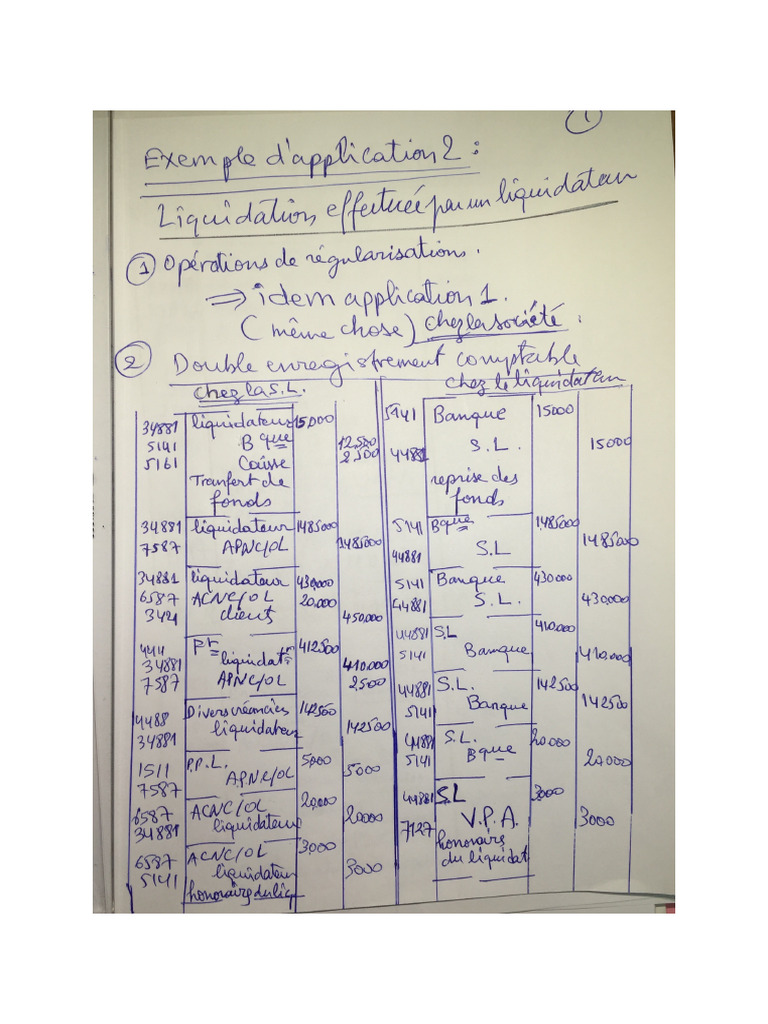 1
Exemple d'application 2 :
Liquidation effectuée par un liquidateur
1 Opérations de régularisations.
⇒ idem application 1.
(même chose) chez la société.
2 Double enregistrement comptable
chez la S.L.
34881 liquidateur 15000
5141 Bque 12500
5161 Caisse 2500
Tranfert de
fonds
34881 liquidateur 1485000
7587 APNC/OL 1485000
34881 liquidateur 430,000
6587 ACNC/OL 20.000
3421 clients 450.000
4411 Fr 412500
34881 liquidat 410.000
7587 APNC/OL 2500
4488 Divers créanciers 142500
34881 liquidateur 142500
1511 P.P.L. 5000
7587 A.P.NC/OL 5000
6587 ACNC/OL 20,000
34881 liquidateur 20000
6587 ACNC/OL 3000
5141 liquidateur 3000
honoraires du liq
chez le liquidateur
5141 Banque 15000
44881 S.L. 15000
reprise des
fonds
5141 Bque 1485000
44881 S.L 1485000
5141 Banque 430000
44881 S.L. 430,000
44881 S.L 410.000
5141 Banque 410,000
44881 S.L. 142500
5141 Banque 142500
44881 S.L. 20000
5141 Bque 20000
44881 SL 3000
7127 V.P.A. 3000
honoraires
du liquidat